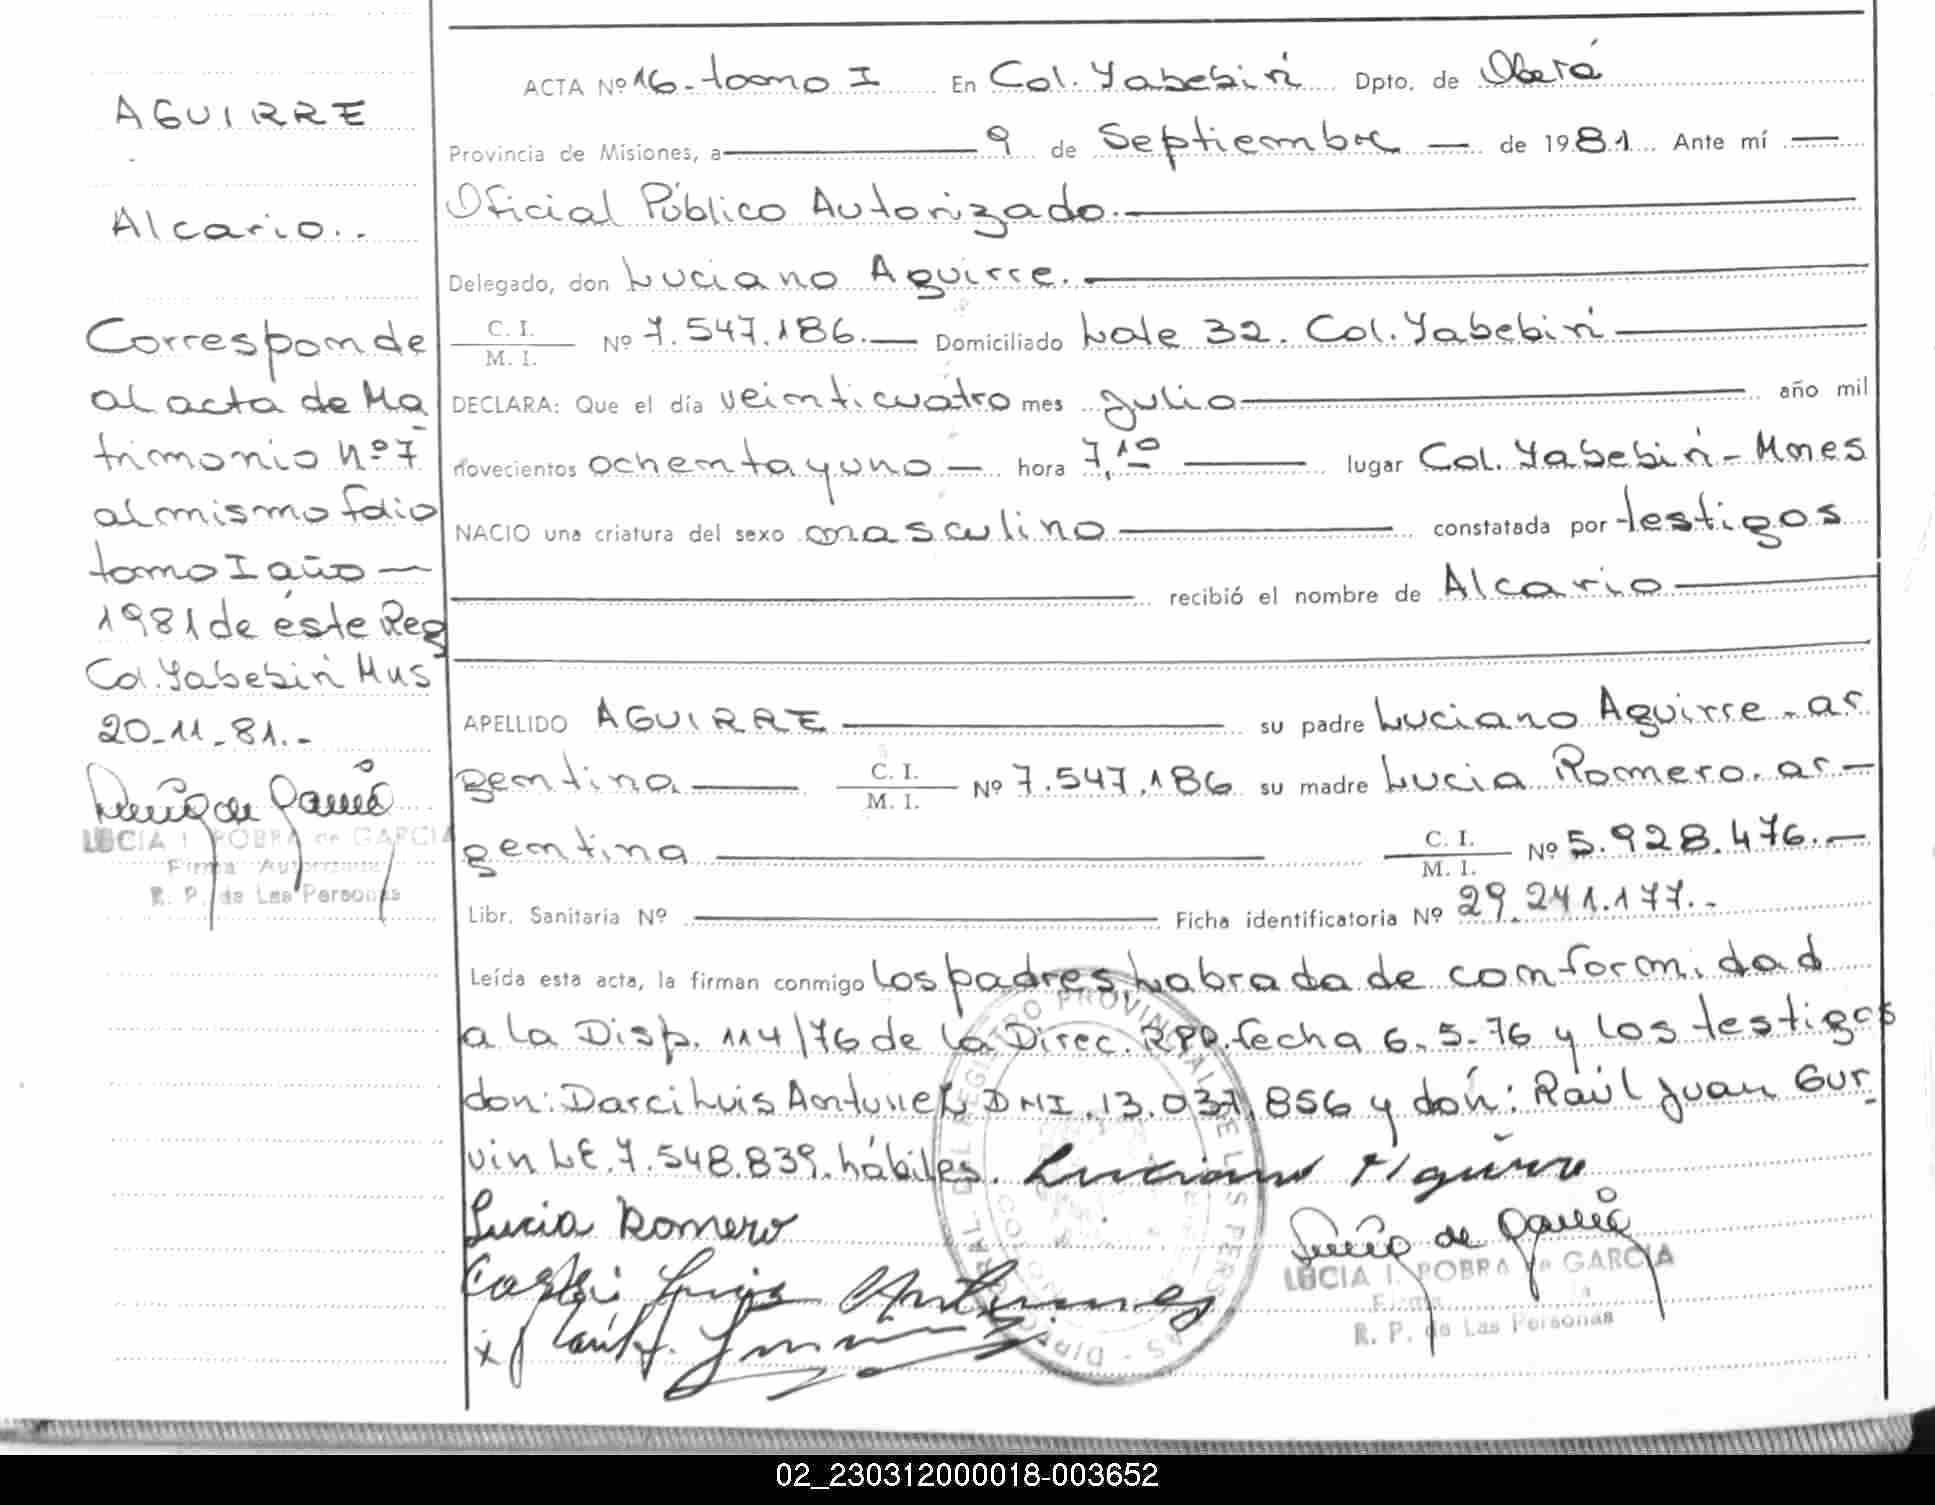 AGUIRRE
Alcario..
Corresponde
al acta de Ma
trimonio nº 7
al mismo folio
tomo I año —
1981 de éste Reg
Col. Yabebirí Mns
20-11-81.-
LUCIA I. ROBRA de GARCIA
Firma Autorizada
R. P. de Las Personas
ACTA Nº 16- tomo I En Col. Yabebirí Dpto. de Oberá
Provincia de Misiones, a — 9 de Septiembre — de 1981 Ante mí —
Oficial Público Autorizado.—
Delegado, don Luciano Aguirre.—
C. I.
M. I. Nº 7.547.186.— Domiciliado Lote 32. Col. Yabebirí —
DECLARA: Que el día veinticuatro mes julio — año mil
novecientos ochenta y uno — hora 7,10 — lugar Col. Yabebirí - Mnes
NACIO una criatura del sexo masculino — constatada por testigos
— recibió el nombre de Alcario —
APELLIDO AGUIRRE — su padre Luciano Aguirre - ar
gentina — C. I.
M. I. Nº 7.547.186 su madre Lucia Romero. ar-
gentina — C. I.
M. I. Nº 5.928.476.—
Libr. Sanitaria Nº — Ficha identificatoria Nº 29.241.177.-
Leída esta acta, la firman conmigo los padres Labrada de conformidad
a la Disp. 114/76 de la Direc. RPP. fecha 6-5-76 y los testigos
don: Darci Luis Antunez DNI. 13.037.856 y don: Raúl Juan Gur
vin LE. 7.548.839. hábiles. Luciano Aguirre
Lucia Romero
LUCIA I. ROBRA de GARCIA
R. P. de Las Personas
02_230312000018-003652